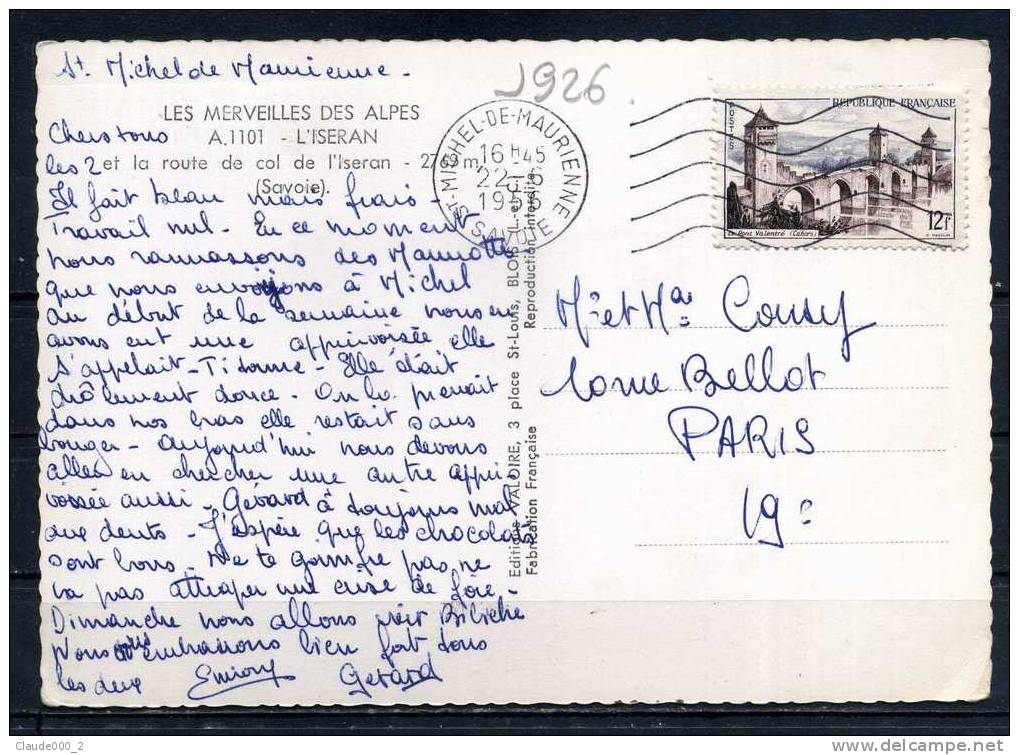 St. Michel de Maurienne -
1926
LES MERVEILLES DES ALPES
A.1101 - L'ISERAN
et la route de col de l'Iseran - 2769 m
(Savoie).
Chers tous
les 2
Il fait beau mais frais -
Travail nul - En ce moment
nous ramassons des Marmottes
que nous envoyons à Michel
au début de la semaine nous en
avons eut une apprivoisée elle
s'appelait - Titoune - Elle était
drôlement douce - On la prenait
dans nos bras elle restait sans
bouger - aujourd'hui nous devons
aller en chercher une autre appri-
voisée aussi - Gérard à toujours mal
aux dents - J'espère que les chocolats
sont bons - Ne te gonfre pas, ne
va pas attraper une crise de foie -
Dimanche nous allons voir Bibiche
Nous embrassons bien fort tous
les deux
Gérard
ST-MICHEL-DE-MAURIENNE
16 H 45
22
19
SAVOIE
RÉPUBLIQUE FRANÇAISE
POSTES
Le Pont Valentré (Cahors)
12f
Editions VALOIRE, 3 place St-Louis, BLOIS (L.-et-C.)
Fabrication Française
Reproduction Interdite
Mr et Me
10 rue Bellot
PARIS
19e
Claude000_2
www.delcampe.net